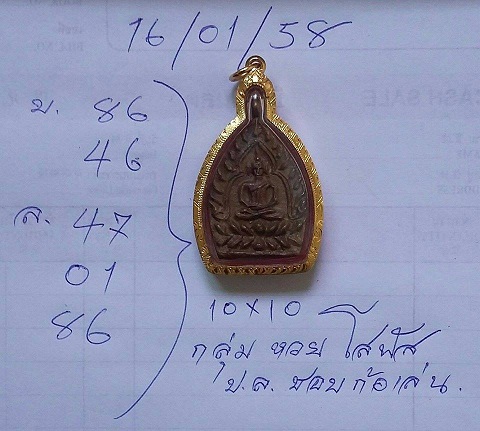 16/01/58
บ. 86
46
ล. 47
01
86
10×10
กลุ่ม หวย โสฬส
ป.ล. ชอบก้อเล่น.